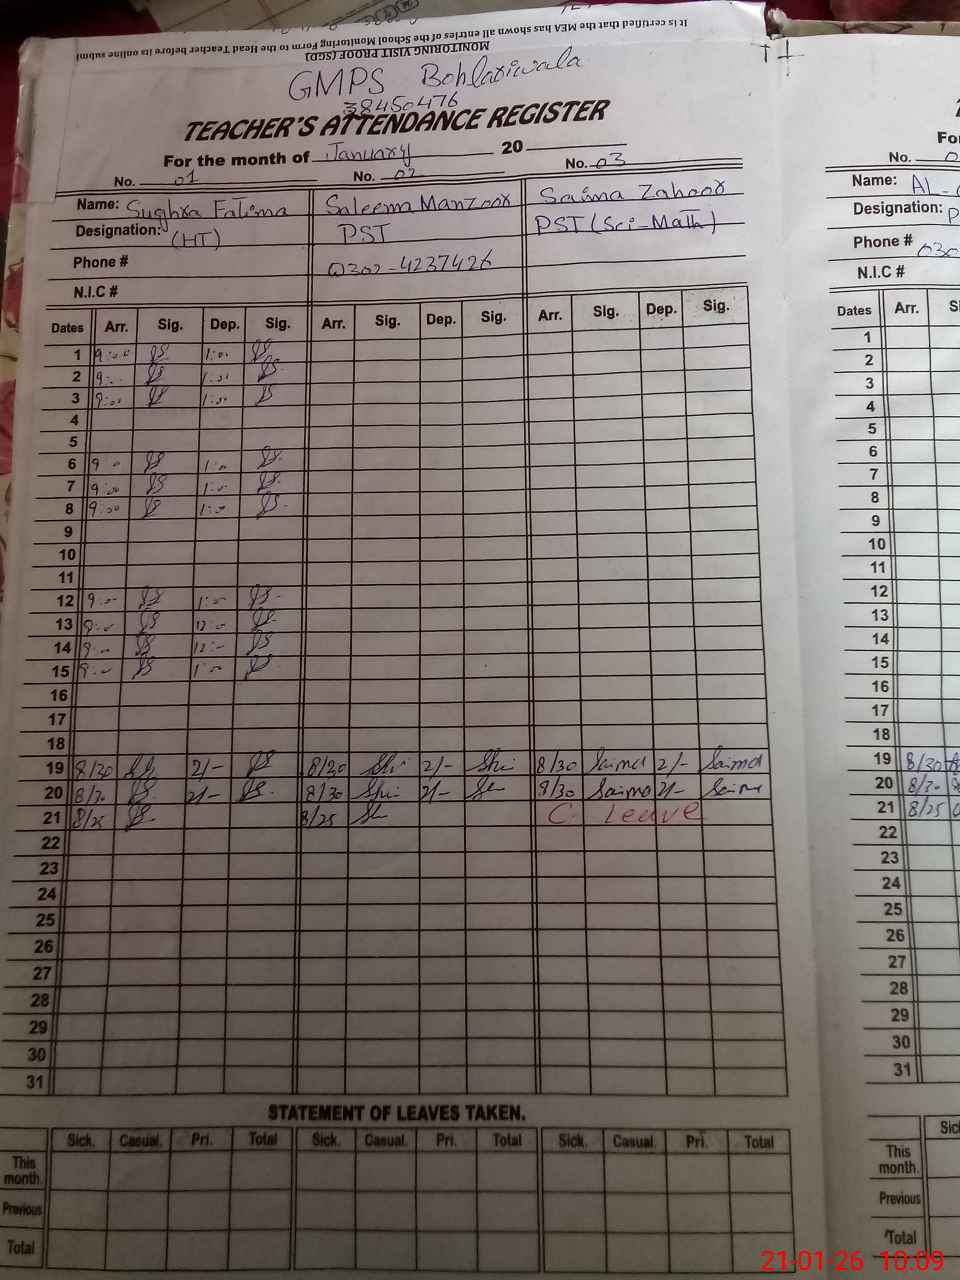 It is certified that the MEA has shown all entries of the School Monitoring Form to the Head Teacher before its online submi
MONITORING VISIT PROOF (SGD)
GMPS Bohlariwala
38450476
TEACHER'S ATTENDANCE REGISTER
For the month of January 20
No. 01 No. 02 No. 03
Name: Sughra Fatima Saleema Manzoor Saima Zahoor
Designation: (HT) PST PST (Sci-Math)
Phone # 0302-4237426
N.I.C #
Dates Arr. Sig. Dep. Sig. Arr. Sig. Dep. Sig. Arr. Sig. Dep. Sig.
1 9:00 1:00
2 9: 1:00
3 9:00 1:00
4
5
6 9 1:
7 9:00 1:
8 9:00 1:
9
10
11
12 9: 1:
13 9: 12:
14 9: 12:
15 9: 1:
16
17
18
19 8/30 2/- 8/30 2/- 8/30 Saima 2/- Saima
20 8/30 2/- 8/30 2/- 8/30 Saima 2/- Saima
21 8/25 8/25 C. Leave
22
23
24
25
26
27
28
29
30
31
STATEMENT OF LEAVES TAKEN.
Sick. Casual. Pri. Total Sick. Casual. Pri. Total Sick. Casual. Pri. Total
This month.
Previous
Total
For
No. 0
Name: AL-
Designation: P
Phone # 030
N.I.C #
Dates Arr. S
1
2
3
4
5
6
7
8
9
10
11
12
13
14
15
16
17
18
19 8/30
20 8/30
21 8/25
22
23
24
25
26
27
28
29
30
31
Sick
This month.
Previous
Total
21-01-26 10:09